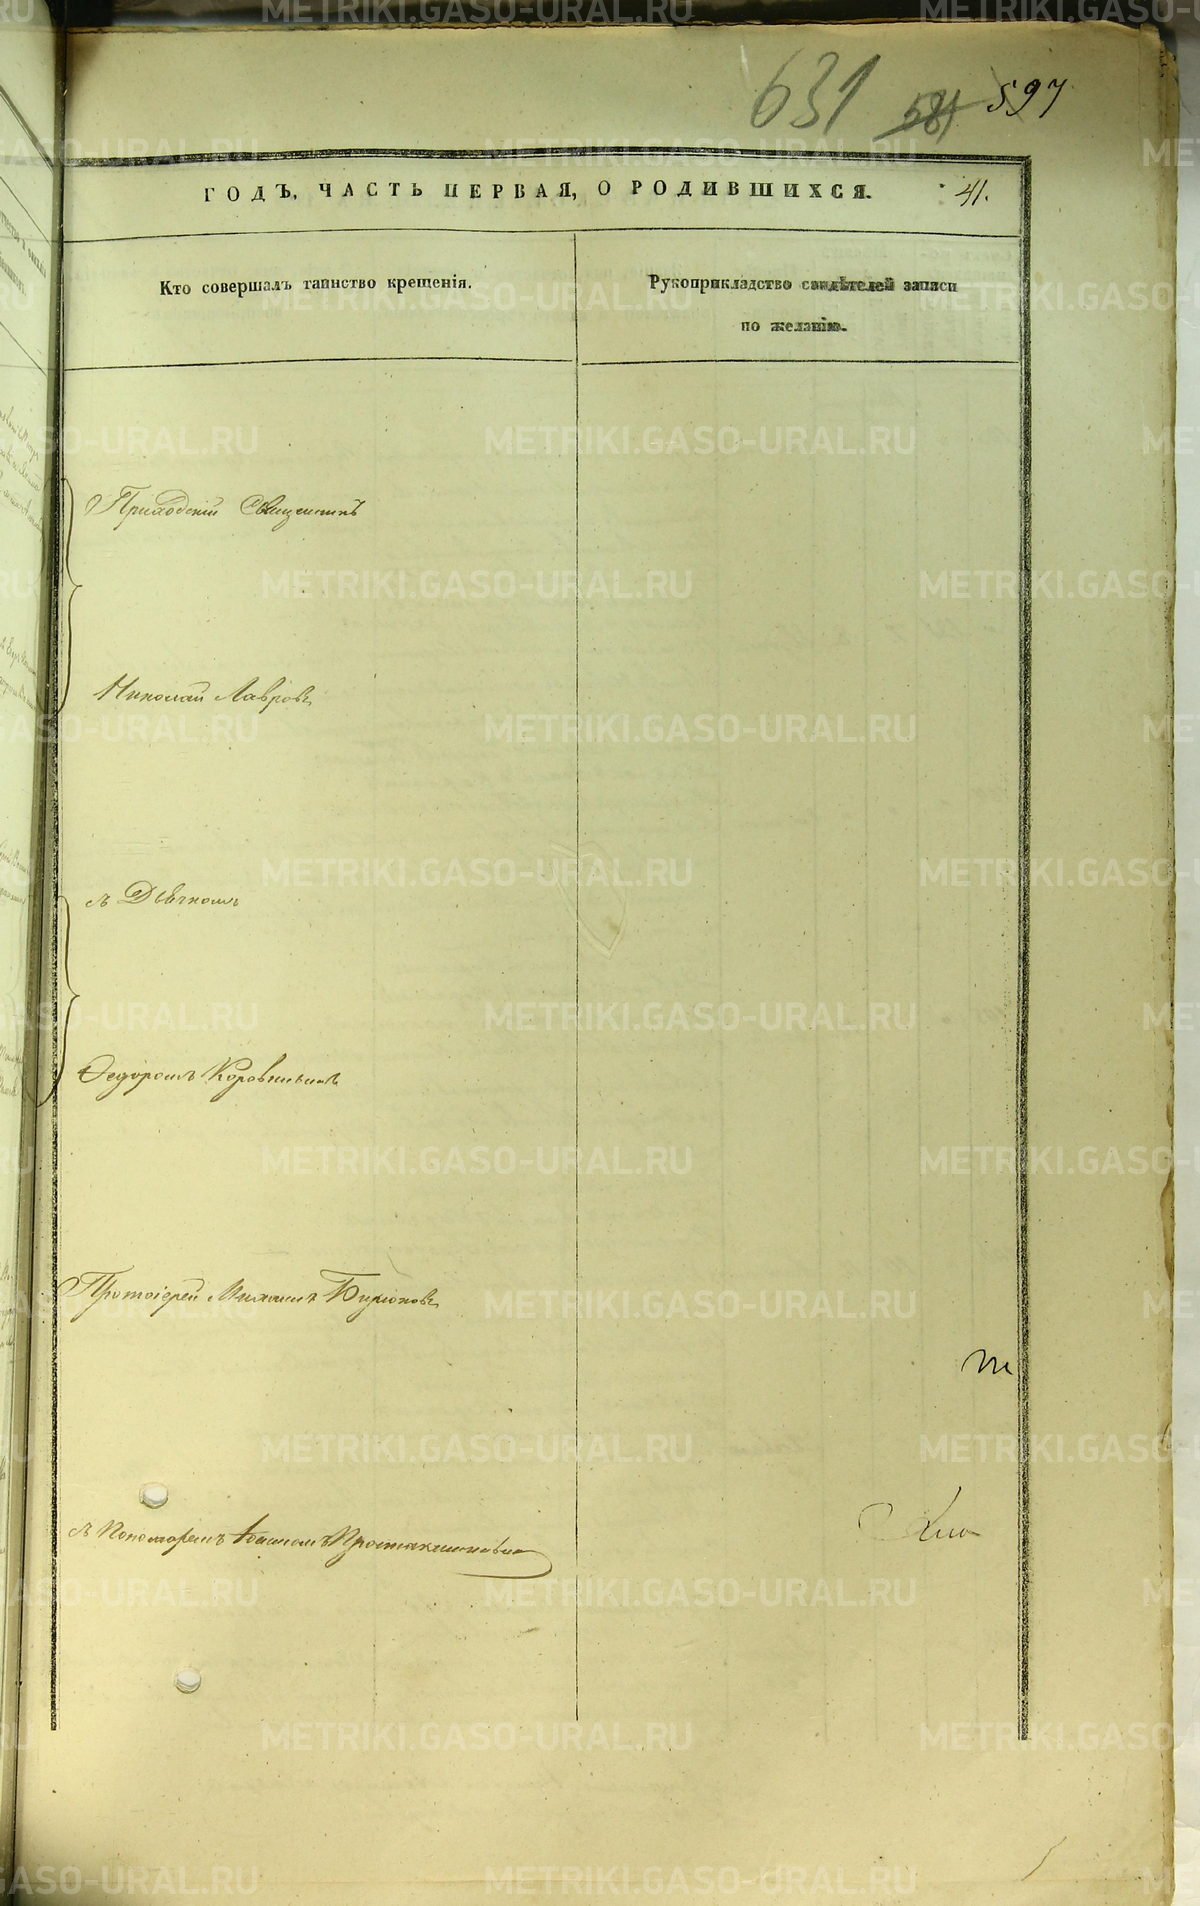 631 581 597
ГОДЪ, ЧАСТЬ ПЕРВАЯ, О РОДИВШИХСЯ. 41.
Кто совершалъ таинство крещенія.
Рукоприкладство свидѣтелей записи
по желанію.
Приходскій Священникъ
Николай Лавровъ
съ Дьячкомъ
Федоромъ Коровинымъ
Протоіерей Михаилъ Бирюковъ
съ Пономаремъ Іоанномъ
METRIKI.GASO-URAL.RU